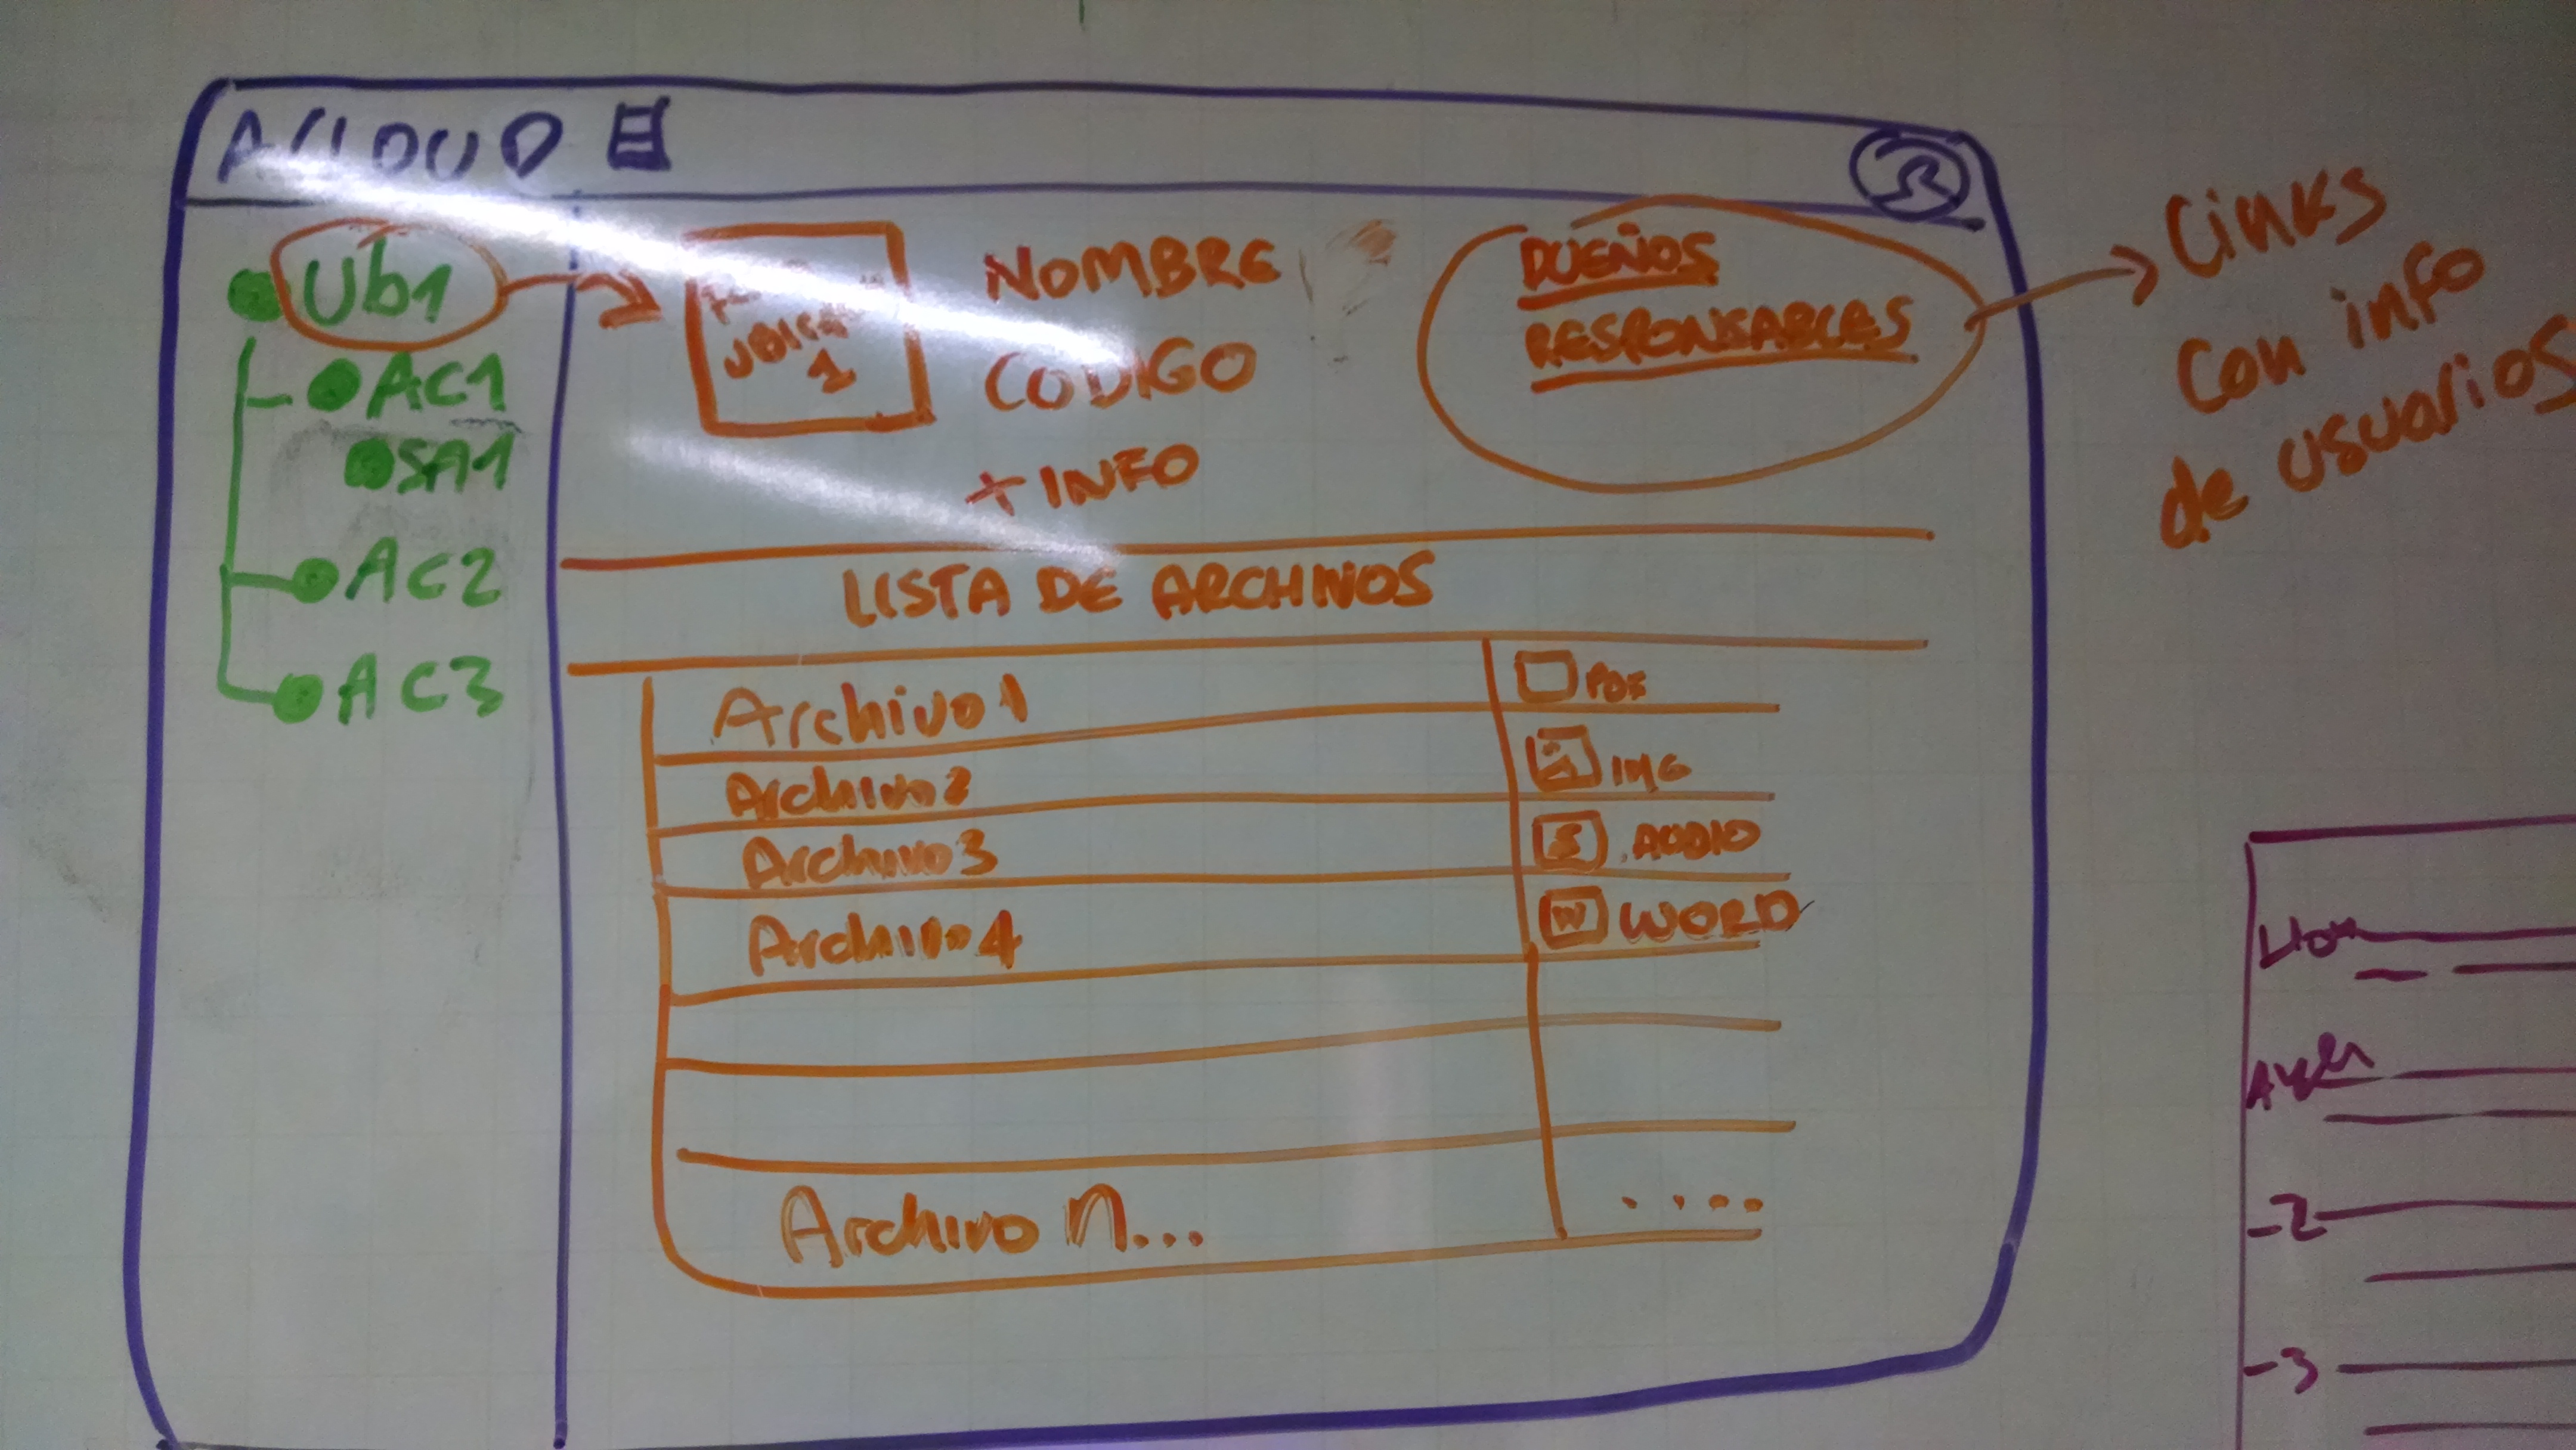 ACLOUD
Ub1
AC1
SA1
AC2
AC3
1
NOMBRE
CODIGO
+ INFO
DUEÑOS
RESPONSABLES
Links
con info
de usuarios
LISTA DE ARCHIVOS
Archivo1 PDF
Archivo2 IMG
Archivo3 AUDIO
Archivo4 W WORD
Archivo n... ....
-2
-3